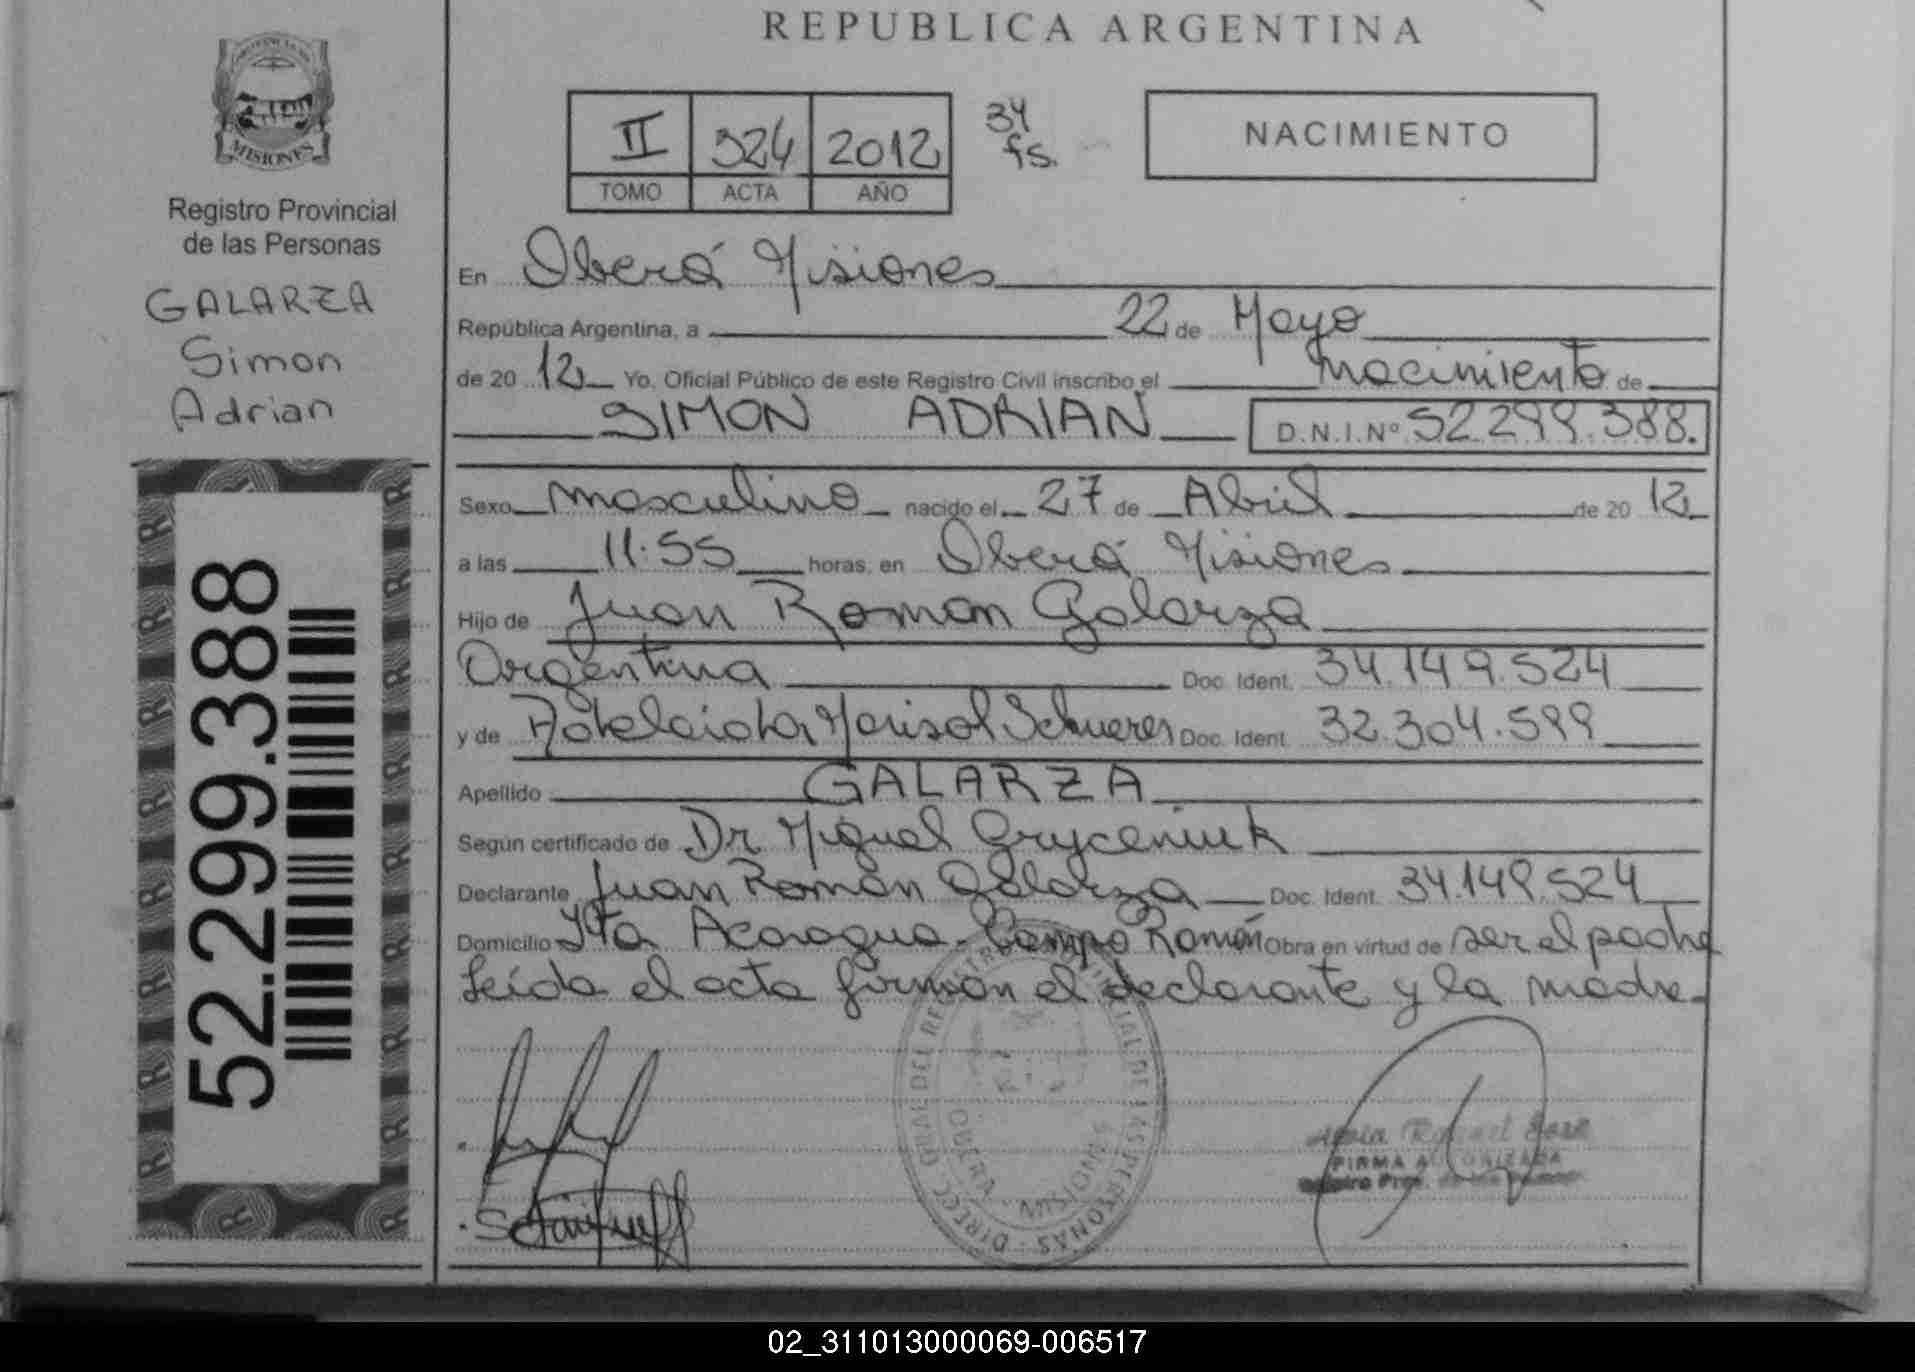 REPUBLICA ARGENTINA
PROVINCIA DE
MISIONES
Registro Provincial
de las Personas
GALARZA
Simon
Adrian
52.299.388
II 324 2012
TOMO ACTA AÑO
34
fs.
NACIMIENTO
En Oberá Misiones
República Argentina, a 22 de Mayo
de 20 12 Yo, Oficial Público de este Registro Civil inscribo el nacimiento de
SIMON ADRIAN D.N.I.Nº 52.299.388.
Sexo masculino nacido el 27 de Abril de 20 12
a las 11:55 horas, en Oberá Misiones
Hijo de Juan Roman Galarza
Argentina Doc. Ident. 34.149.524
y de Marisol Doc. Ident. 32.304.599
Apellido GALARZA
Según certificado de Dr Miguel Gryceniuk
Declarante Juan Román Galarza Doc. Ident. 34.149.524
Domicilio Acaragua - Campo Román Obra en virtud de ser el padre
Leída el acta firman el declarante y la madre-
DIRECC. GRAL DEL REGISTRO PROVINCIAL DE LAS PERSONAS
OBERA - MISIONES
FIRMA AUTORIZADA
02_311013000069-006517